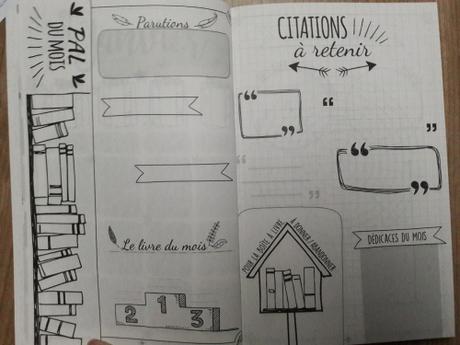 PAL
DU MOIS
Parutions
Le livre du mois
2 1 3
CITATIONS
à retenir
“
”
“
”
“
”
“
”
POUR LA BOÎTE À LIVRE
À DONNER/ABANDONNER
DÉDICACES DU MOIS